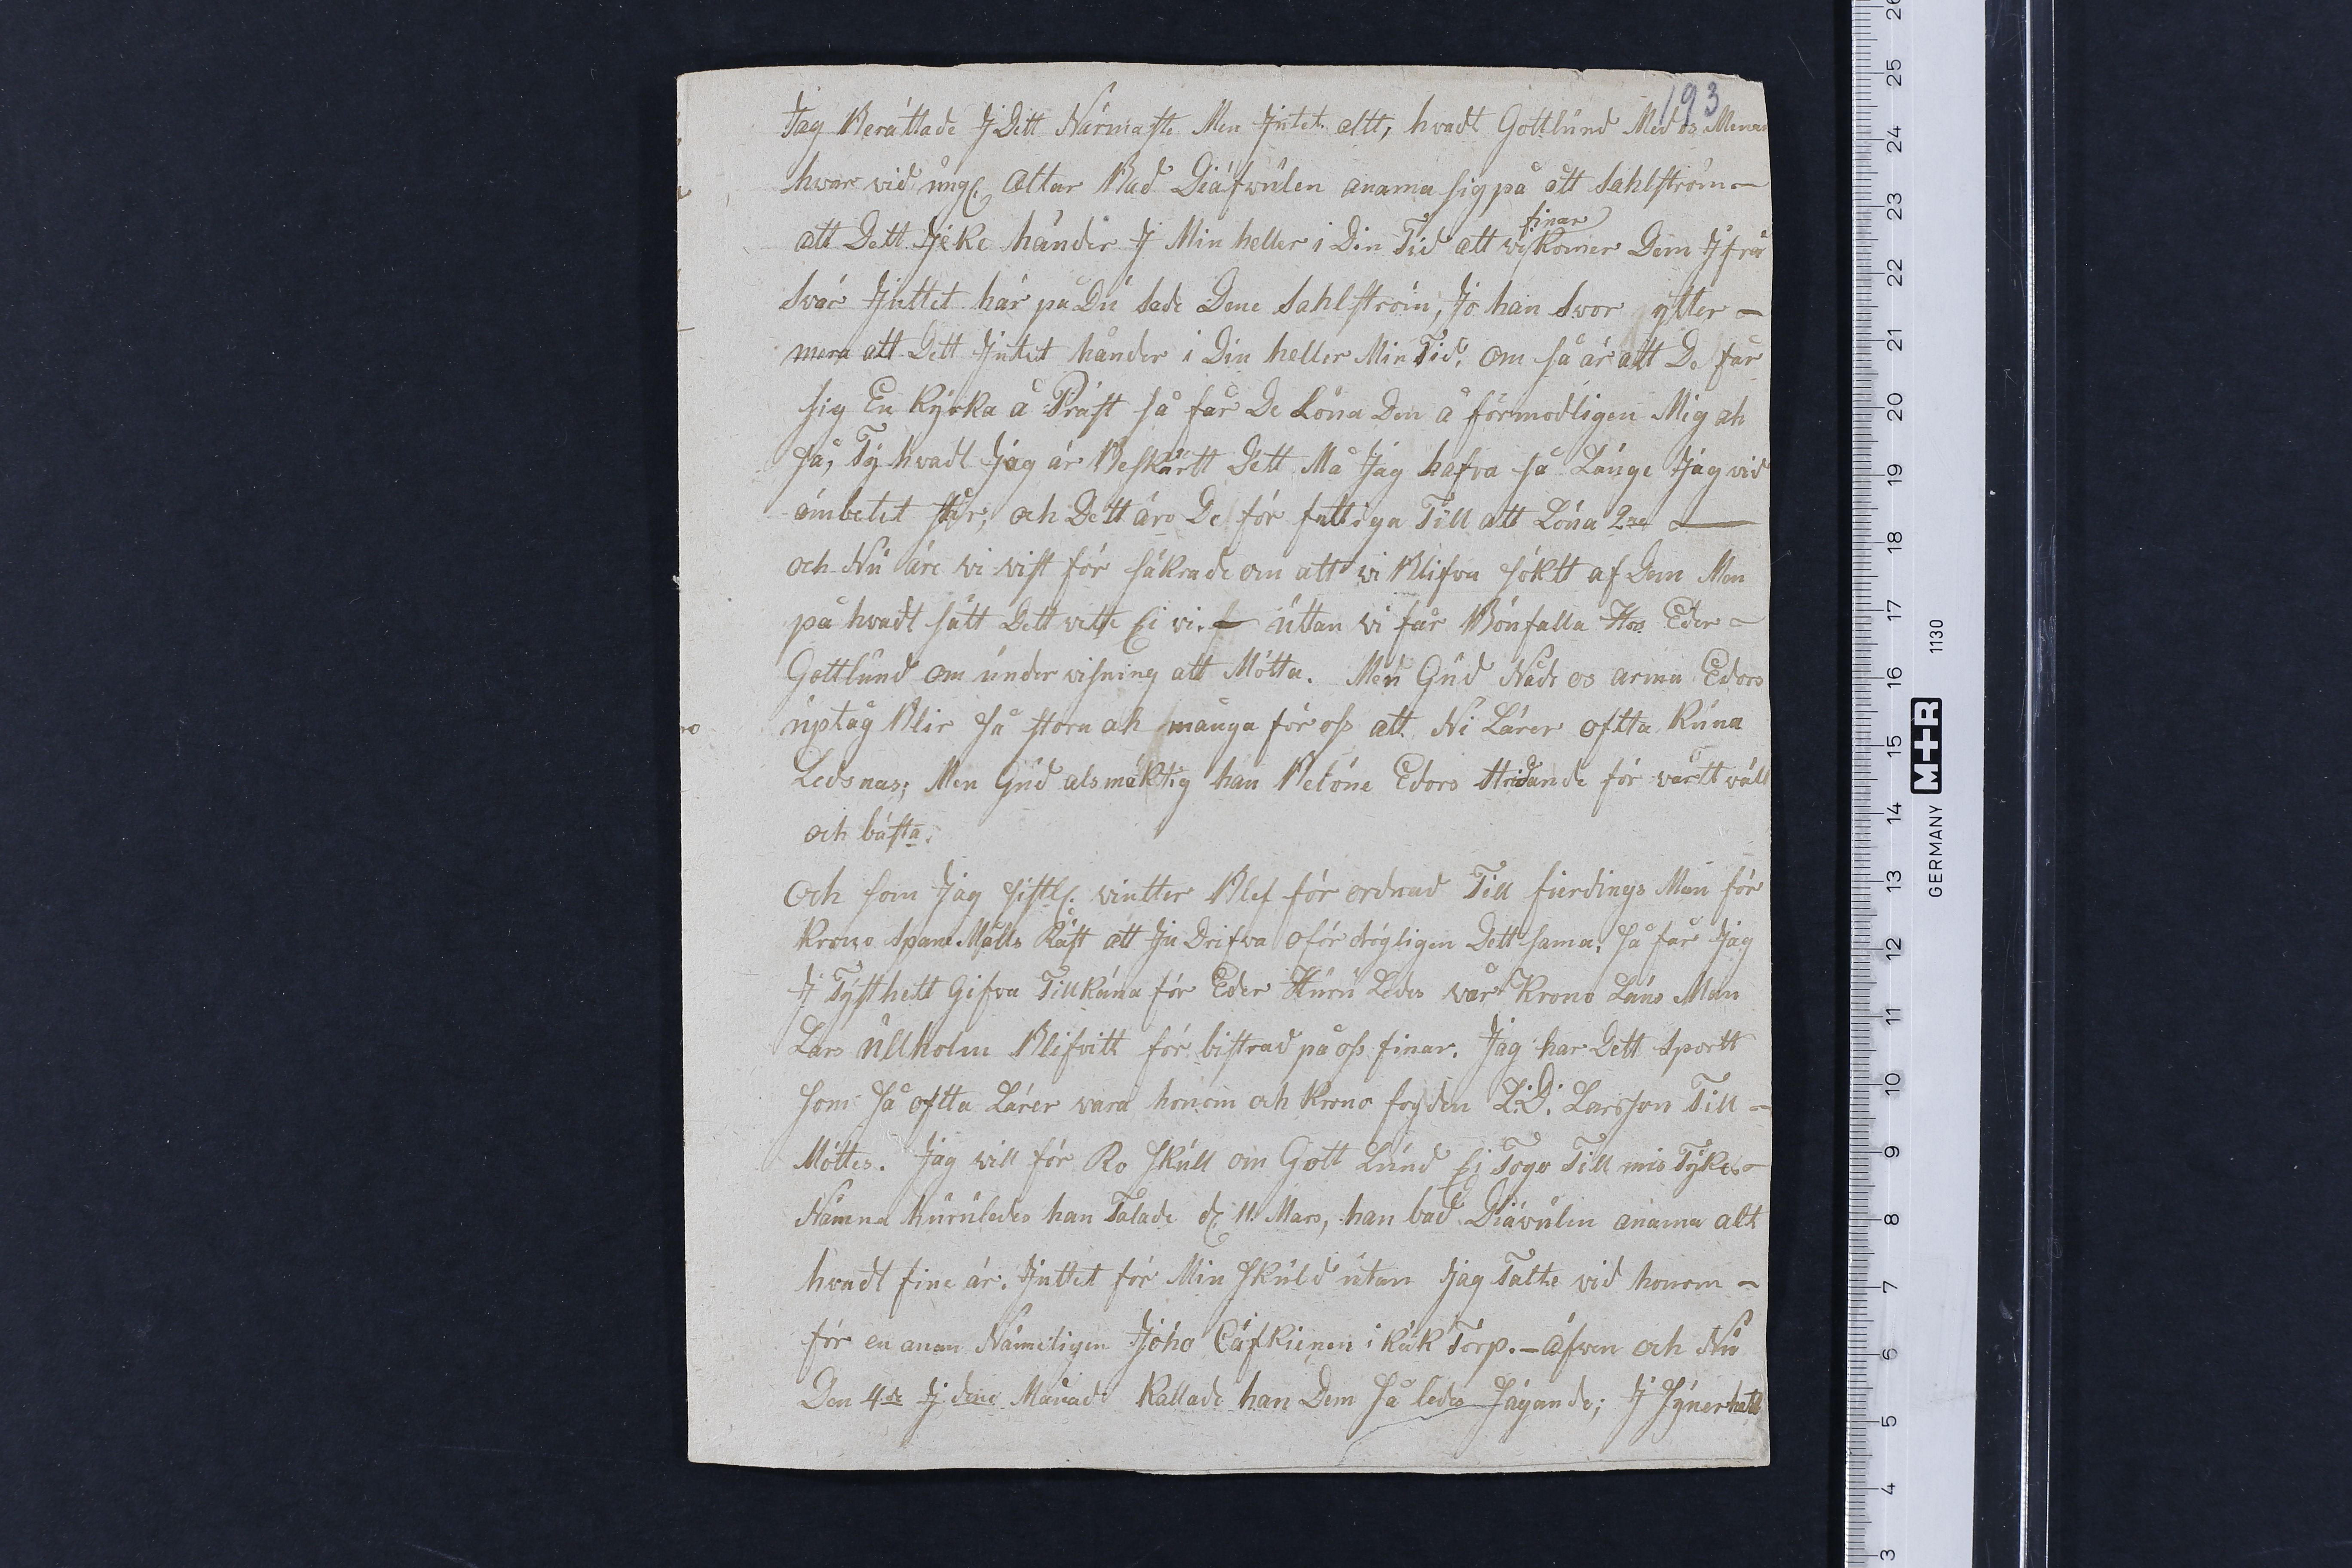 193
Jag Berättade J Ditt Närmaste Men Jntet altt, hvadt Gottlund Med os Menar
hvar vid ungf. Ottar Bad Diäfwulen anama sig på att Sahlström
att Dett Jcke händer J Min heller i Din Tid att vi finar komer Dem Jfrå
Svär Jnttet här på Du sade Dene Sahlström, Jo han Swor ytter
mera att Dett Jntet händer i Din heller Min Tid. om så är att De får
sig En Kyrka å Präst så får De Löna Den å förmodligen Mig ah
så, Ty hvadt Jag är Beskärtt Dett Må Jag hafva så Länge Jag vid
ämbetet står; och Dett äro De för fattiga Till att Löna 2ne
och Nu äre vi vist för säkrade om att vi Blifva söktt af Dem Men
på hvadt sätt Dett vette Ei vi. uttan vi får Bönfalla Hos Eder
Gottlund om under visning att Mötta. Men Gud Nåde os arma Edors
uptåg Blir så stora ah många för oss att Ni Lärer oftta Kuna
Ledsnas; Men Gud alsmäktig han Belöne Edors stridande för vårtt väll
och bästa.
Och som Jag sistl. vintter Blef för ordnad Till fierdings Man för
Krono Spane Måls Räst att Jn Drifva oför dröyligen Dett sama. Så får Jag
J Tysthett Gifva Tillkäna för Eder Huru Ledes vår Krono Läns Man
Lars Ullholm Blifvitt för bistrad på oss finar. Jag har Dett Sportt
som så oftta Lärer vara honom och Krono fogden L: D: Larsson Till
Möttes. Jag vill för Ro skull om Gott Lund Ei Togo Till mis Tykes
Nämna huruledes han Talade d. 11 Mars, han bad Diävulen anama alt
hvadt fine är. Jnttet för Min skuld utan Jag Taltte vid honom
för en anan Nämeligen Jöho Cäfkienen i Räk Torp. – äfwen och Nu
Den 4de J dene Månad Kallade han Dem så ledes sägande; J Synerhett